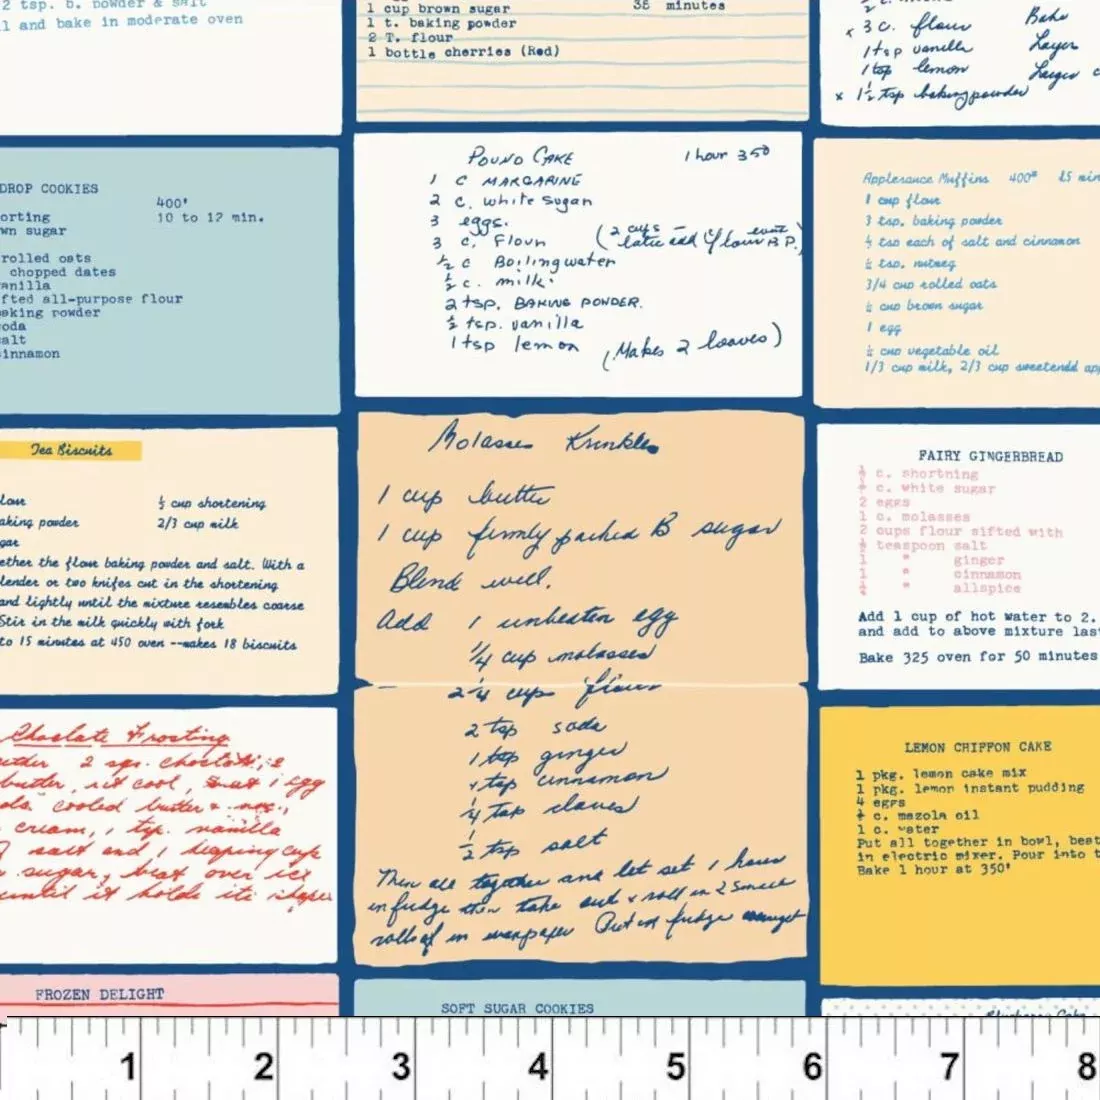 2 tsp. b. powder & salt
l and bake in moderate oven
1 cup brown sugar
35 minutes
1 t. baking powder
2 T. flour
1 bottle cherries (Red)
x 3 c. flour
Bake
1 tsp vanilla
Layer
1 tsp lemon
Larger c
x 1½ tsp baking powder
DROP COOKIES
400°
orting
10 to 12 min.
wn sugar
rolled oats
chopped dates
anilla
fted all-purpose flour
aking powder
oda
alt
innamon
POUND CAKE
1 hour 350
1 C MARGARINE
2 c. white sugar
3 eggs.
3 c. Flour
(2 cups -
½ c Boiling water
½ c. milk.
2 tsp. BAKING POWDER.
½ tsp. vanilla
1 tsp lemon
(Makes 2 loaves)
Applesauce Muffins 400° 15 min
1 cup flour
3 tsp. baking powder
½ tsp each of salt and cinnamon
¼ tsp. nutmeg
3/4 cup rolled oats
¼ cup brown sugar
1 egg
¼ cup vegetable oil
1/3 cup milk, 2/3 cup sweetendd app
Tea Biscuits
lour
½ cup shortening
aking powder
2/3 cup milk
gar
ether the flour baking powder and salt. With a
lender or two knifes cut in the shortening
and lightly until the mixture resembles coarse
Stir in the milk quickly with fork
to 15 minutes at 450 oven --makes 18 biscuits
Molasses Krinkles
1 cup butter
1 cup firmly packed B sugar
Blend well.
Add 1 unbeaten egg
1/4 cup molasses
2 1/4 cups flour
2 tsp soda
1 tsp ginger
1 tsp cinnamon
1/4 tsp cloves
1/2 tsp salt
Then all together and let set 1 hour
in fridge then take out & roll in 2 small
rolls of in waxpaper Put in fridge
FAIRY GINGERBREAD
½ c. shortning
c. white sugar
2 eggs
1 c. molasses
2 cups flour sifted with
½ teaspoon salt
1 " ginger
1 " cinnamon
" allspice
Add 1 cup of hot water to 2.
and add to above mixture las
Bake 325 oven for 50 minutes
Choclate Frosting
2 sqs. choclate,
butter, let cool, beat 1 egg
cooled butter
cream, 1 tsp. vanilla
salt and 1 heaping cup
sugar, beat over ice
until it holds its shape
LEMON CHIFFON CAKE
1 pkg. lemon cake mix
1 pkg. lemon instant pudding
4 eggs
c. mazola oil
1 c. water
Put all together in bowl, beat
in electric mixer. Pour into t
Bake 1 hour at 350°
FROZEN DELIGHT
SOFT SUGAR COOKIES
Blueberry Cake
1 2 3 4 5 6 7 8